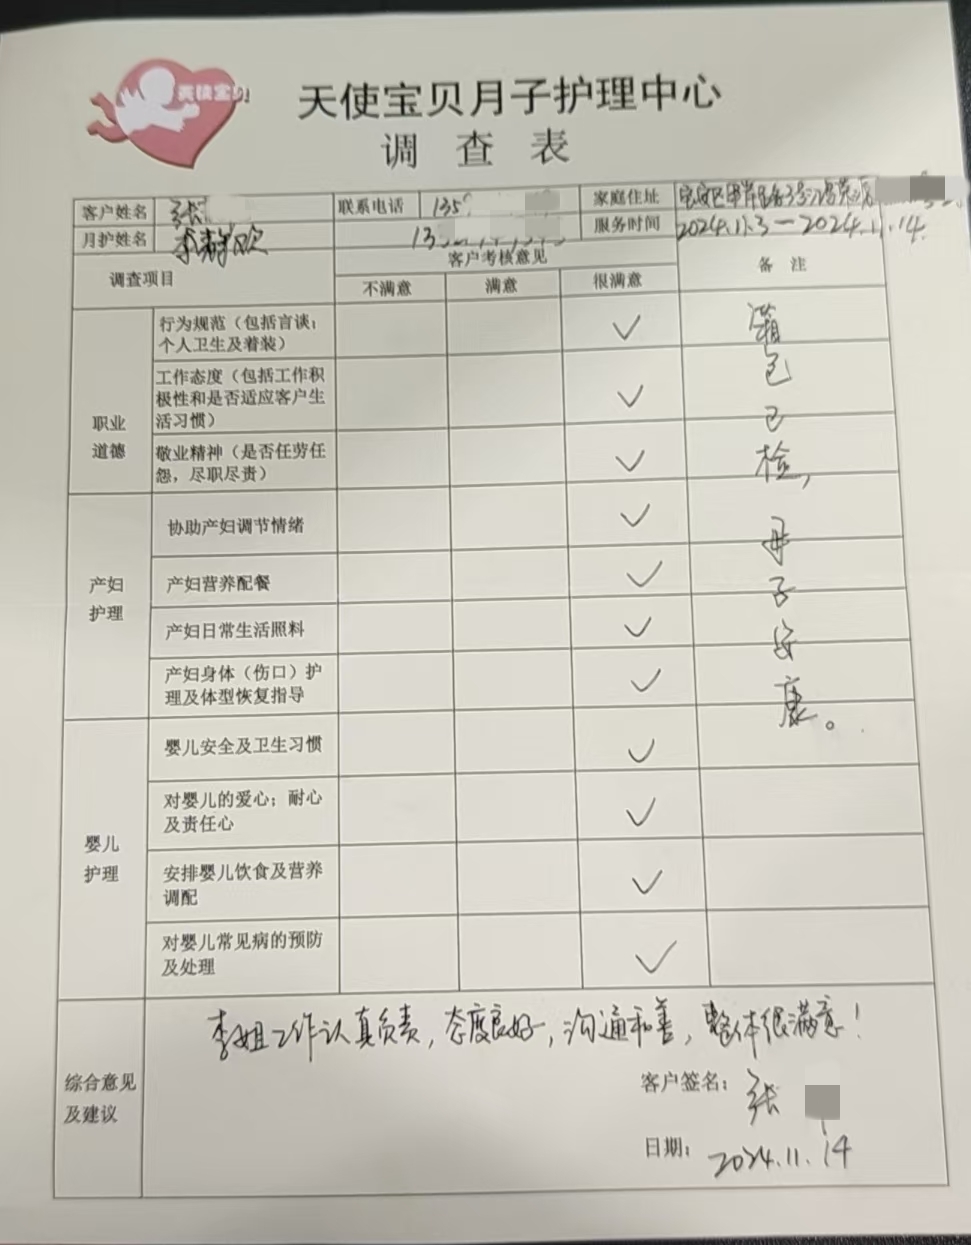 天使宝贝
天使宝贝月子护理中心
调查表
客户姓名 张 联系电话 135 家庭住址 宝安区
月护姓名 李静欣 13 服务时间 2024.11.3—2024.11.14
调查项目 客户考核意见 备注
不满意 满意 很满意
职业道德
行为规范（包括言谈；个人卫生及着装） ✓
工作态度（包括工作积极性和是否适应客户生活习惯） ✓
敬业精神（是否任劳任怨，尽职尽责） ✓
产妇护理
协助产妇调节情绪 ✓
产妇营养配餐 ✓
产妇日常生活照料 ✓
产妇身体（伤口）护理及体型恢复指导 ✓
婴儿护理
婴儿安全及卫生习惯 ✓
对婴儿的爱心；耐心及责任心 ✓
安排婴儿饮食及营养调配 ✓
对婴儿常见病的预防及处理 ✓
箱包已检，母子安康。
综合意见及建议
李姐工作认真负责，态度良好，沟通和善，整体很满意！
客户签名：张
日期：2024.11.14